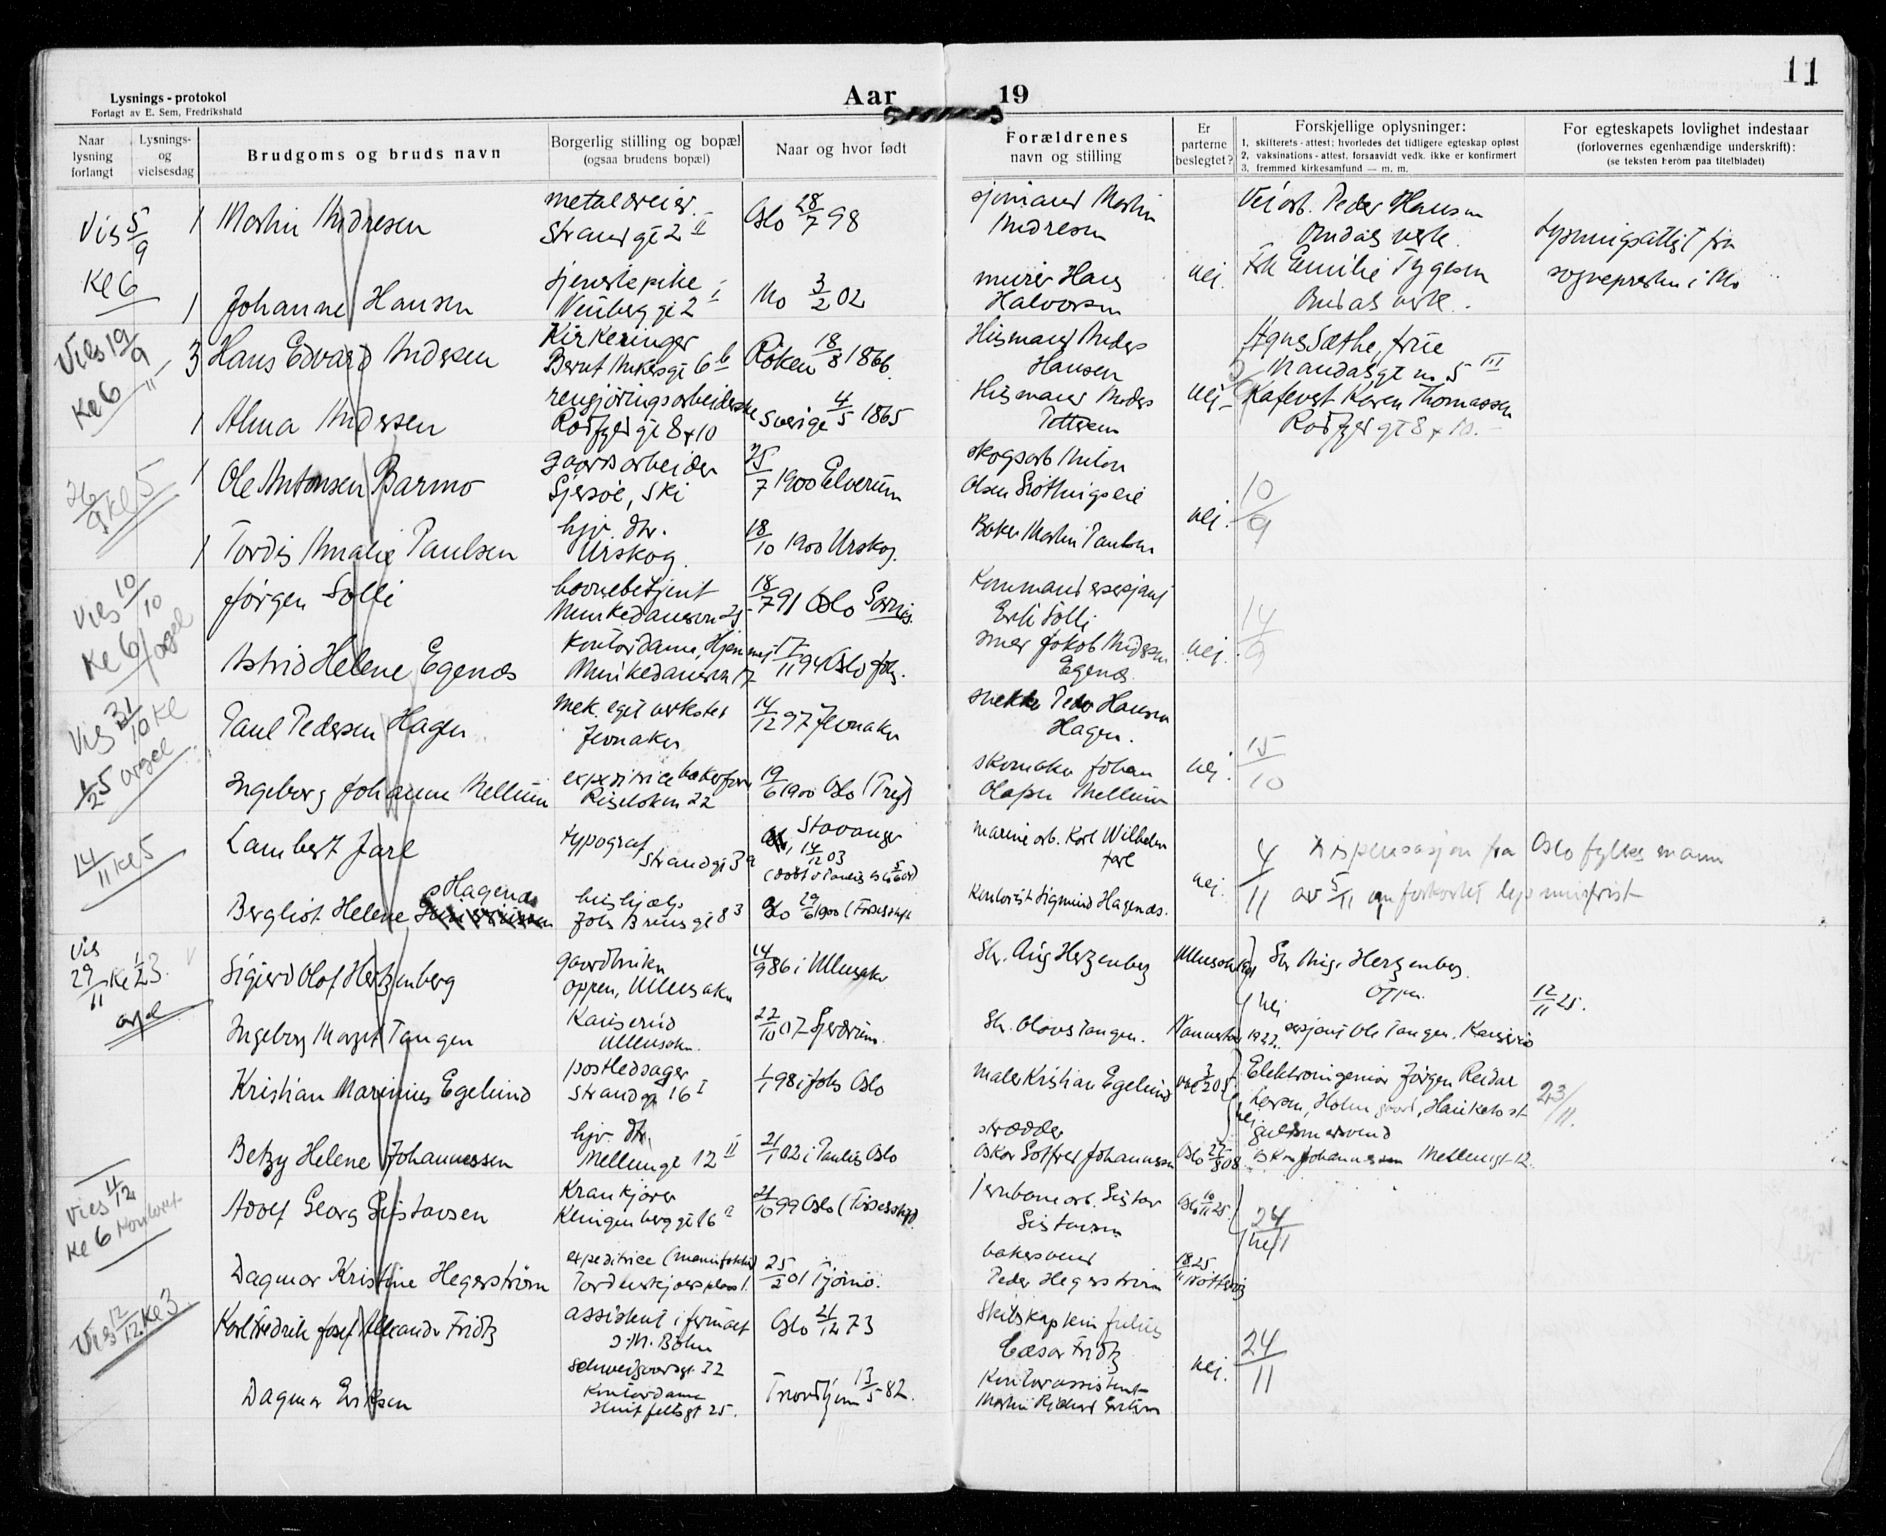 11
Lysnings-protokol
Forlagt av E. Sem, Fredrikshald
Aar 19
Naar lysning forlangt
Lysnings- og vielsesdag
Brudgoms og bruds navn
Borgerlig stilling og bopæl
(ogsaa brudens bopæl)
Naar og hvor født
Forældrenes
navn og stilling
Er parterne beslegtet?
Forskjellige oplysninger:
1, skifterets-attest; hvorledes det tidligere egteskap opløst
2, vaksinations-attest, forsaavidt vedk. ikke er konfirmert
3, fremmed kirkesamfund — m. m.
For egteskapets lovlighet indestaar
(forlovernes egenhændige underskrift):
(se teksten herom paa titelbladet)
Vies 5/9
Kl 6
1 Martin Andresen
metaldreier
Strandgt 2 II
Oslo 28/7 98
sjømand Martin
Andresen
Veiarb. Peder Hansen
Omdals verk.
Lysningsattest fra
sognepresten i Mo
1 Johanne Hansen
tjenestepike
Neuberggt 2 I
Mo 3/2 02
murer Hans
Halvorsen
nej.
Emilie Tygesen
Omdals verk.
Vies 19/9
Kl 6
3 Hans Edvard Andersen
Kirkeringer
Bernt Ankersgt 6 b
Røken 18/8 1866.
Husmand Anders
Hansen
Agnes Sæthe, frue
Mandalsgt no 5 III
1 Alma Andersen
rengjøringsarbeiderske
Rosfjordgt 8 + 10
Sverige 4/5 1865
Husmand Anders
Pettersen
nej-
Kafevert Karen Thomassen
gt 8 + 10.
26/9 Kl 5
1 Ole Antonsen Barmo
gaardsarbeider
Ski
25/7 1900 Elverum
skogsarb Anton
Olsen
nej.
10/9
1 Tordis Amalie Paulsen
hjv. dtr.
Urskog.
18/10 1900 Urskog.
Baker Martin Paulsen
Vies 10/10
Kl 6 orgel
Jørgen Solli
havnebetjent
Munkedamsvn 25
18/7 91 Oslo
Kommandersersjant
Solli
14/9
Astrid Helene Egenæs
Kontordame,
Munkedamsvn 17
17/11 94 Oslo Joh.
Jakob Andersen
Egenæs.
nej.
Vies 31/10 Kl
5 orgel
Paul Pedersen Hagen
mek. eget verksted
Jevnaker
14/12 97 Jevnaker
snekker Peder Hansen
Hagen.
15/10
Ingeborg Johanne Mellum
expeditrice
Riseløken 22
19/6 1900 Oslo (Tref)
skomaker Johan
Olafsen Mellum
nej.
14/11 Kl 5
Lambert Jarl
typograf
Strandgt 3 a
Stavanger
14/12 03
marinearb. Karl Wilhelm
Jarl
4/11
Dispensasjon fra Oslo fylkesmann
av 5/11 om forkortet lysningsfrist
Bergliot Helene Hagenæs
hushjælp
Johs Brunsgt 8 3
Oslo 29/6 1900
Kontorist Sigmund Hagenæs.
nej.
Vies
29/11 Kl 1/2 3.
orgel
Sigurd Olof Hertzenberg
gaardbruker
Oppen, Ullensaker
14/9 86 i Ullensaker
Gbr. Aug Hertzenberg
Ullensaker
Gbr Aug. Hertzenberg
Oppen.
nej
12/11 25.
Ingeborg Margit Tangen
Kauserud
Ullensaker.
22/10 07 Gjerdrum.
Gbr. Olavs Tangen.
Nannestad
1922
sersjant Ole Tangen, Kauserud
Kristian Marinius Egelund
postledsager
Strandgt 16 I
1/1 98 i Johs Oslo
maler Kristian Egelund
Elektroingeniør Jørgen Reidar
nej
23/11.
Betzy Helene Johannessen
hjv. dtr.
Mellumgt 12 II
21/1 02 i Paulus Oslo
skrædder
Oskar Gotfred Johannessen
Oslo 27/8 08
gulsmedsvend
Oskar Johannessen Mellumgt 12.
Vies 11/12
Kl 6
Adolf Georg Gustavsen
Krankjører
Klingenberggt 6 II
21/10 99 Oslo
Jernbanearb. Gustav
Gustavsen
Oslo 10/11 25.
24/11
nej
Dagmar Kristine Hegerstrøm
expeditrice
Tordenskjoldsplass 1.
25/2 01 Tjømø.
bakersvend
Peder Hegerstrøm
18/11 25
Nøtterø
Vies 12/12 Kl 3.
Karl Fredrik Josef Alexander Fridtz
assistent i firmaet
Bohn
Schweigaardsgt 32
Oslo 21/12 73
Skibskaptein Julius
Cæsar Fridtz
nej.
24/11
Dagmar Eriksen
Kontordame
Huitfeldtsgt 25.
Trondhjem 13/5 82.
Kontorassistent
Martin Richard Eriksen